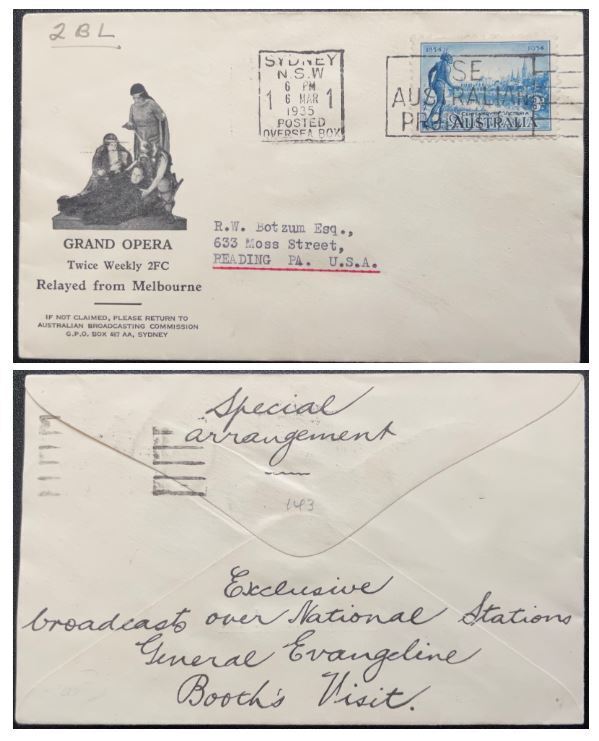 2BL
SYDNEY
N.S.W
6 PM
1 6 MAR 1
1935
POSTED
OVERSEA BOX
1834 1934
SE
AUSTRALIAN
PRO
AUSTRALIA
GRAND OPERA
Twice Weekly 2FC
Relayed from Melbourne
IF NOT CLAIMED, PLEASE RETURN TO
AUSTRALIAN BROADCASTING COMMISSION
G.P.O. BOX 487 AA, SYDNEY
R.W. Botzum Esq.,
633 Moss Street,
READING PA. U.S.A.
Special
arrangement
143
Exclusive
broadcasts over National Stations
General Evangeline
Booth's Visit.